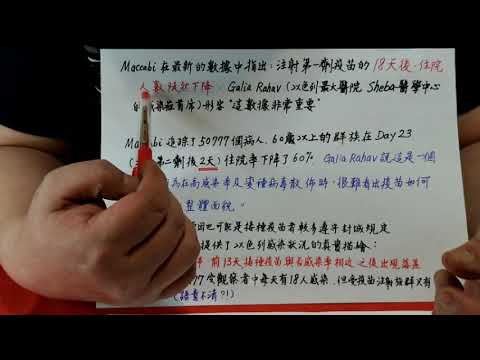 Maccabi 在最新的數據中指出：注射第一劑疫苗的 18天後，住院
人數該就下降，Galia Rahav (以色列最大醫院 Sheba 醫學中心
的感染症首席) 形容 "這數據非常重要"
Maccabi 追踪了 50777 個病人，60歲以上的群族在 Day 23
第二劑後 2天) 住院率下降了 60%. Galia Rahav 說這是一個
為在高感染率及變種病毒散佈時，很難看出疫苗如何
整體面貌.
也可能是接種疫苗者較多遵守封城規定
提供了以色列感染狀況的真實描繪：
前13天接種疫苗與否感染率相近，之後出現落差
777 受觀察者中每天有18人感染，但受疫苗注射族群又有
(語焉不清?!)